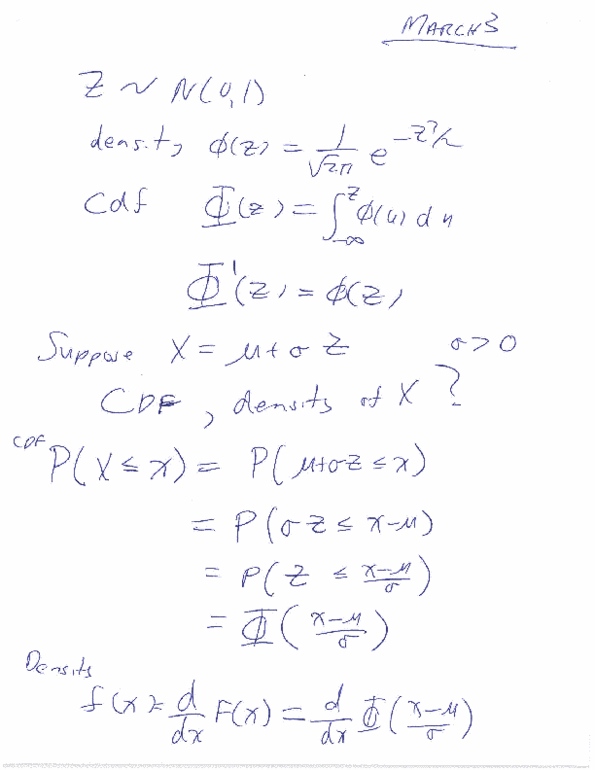 MARCH 3
Z ~ N(0,1)
density φ(z) = 1/√2π e^(-z²/2)
Cdf Φ(z) = ∫_{-∞}^{z} φ(u) du
Φ'(z) = φ(z)
Suppose X = μ + σ Z σ > 0
CDF, density of X ?
CDF P(X ≤ x) = P(μ+σZ ≤ x)
= P(σZ ≤ x-μ)
= P(Z ≤ (x-μ)/σ)
= Φ((x-μ)/σ)
Density
f(x) = d/dx F(x) = d/dx Φ((x-μ)/σ)